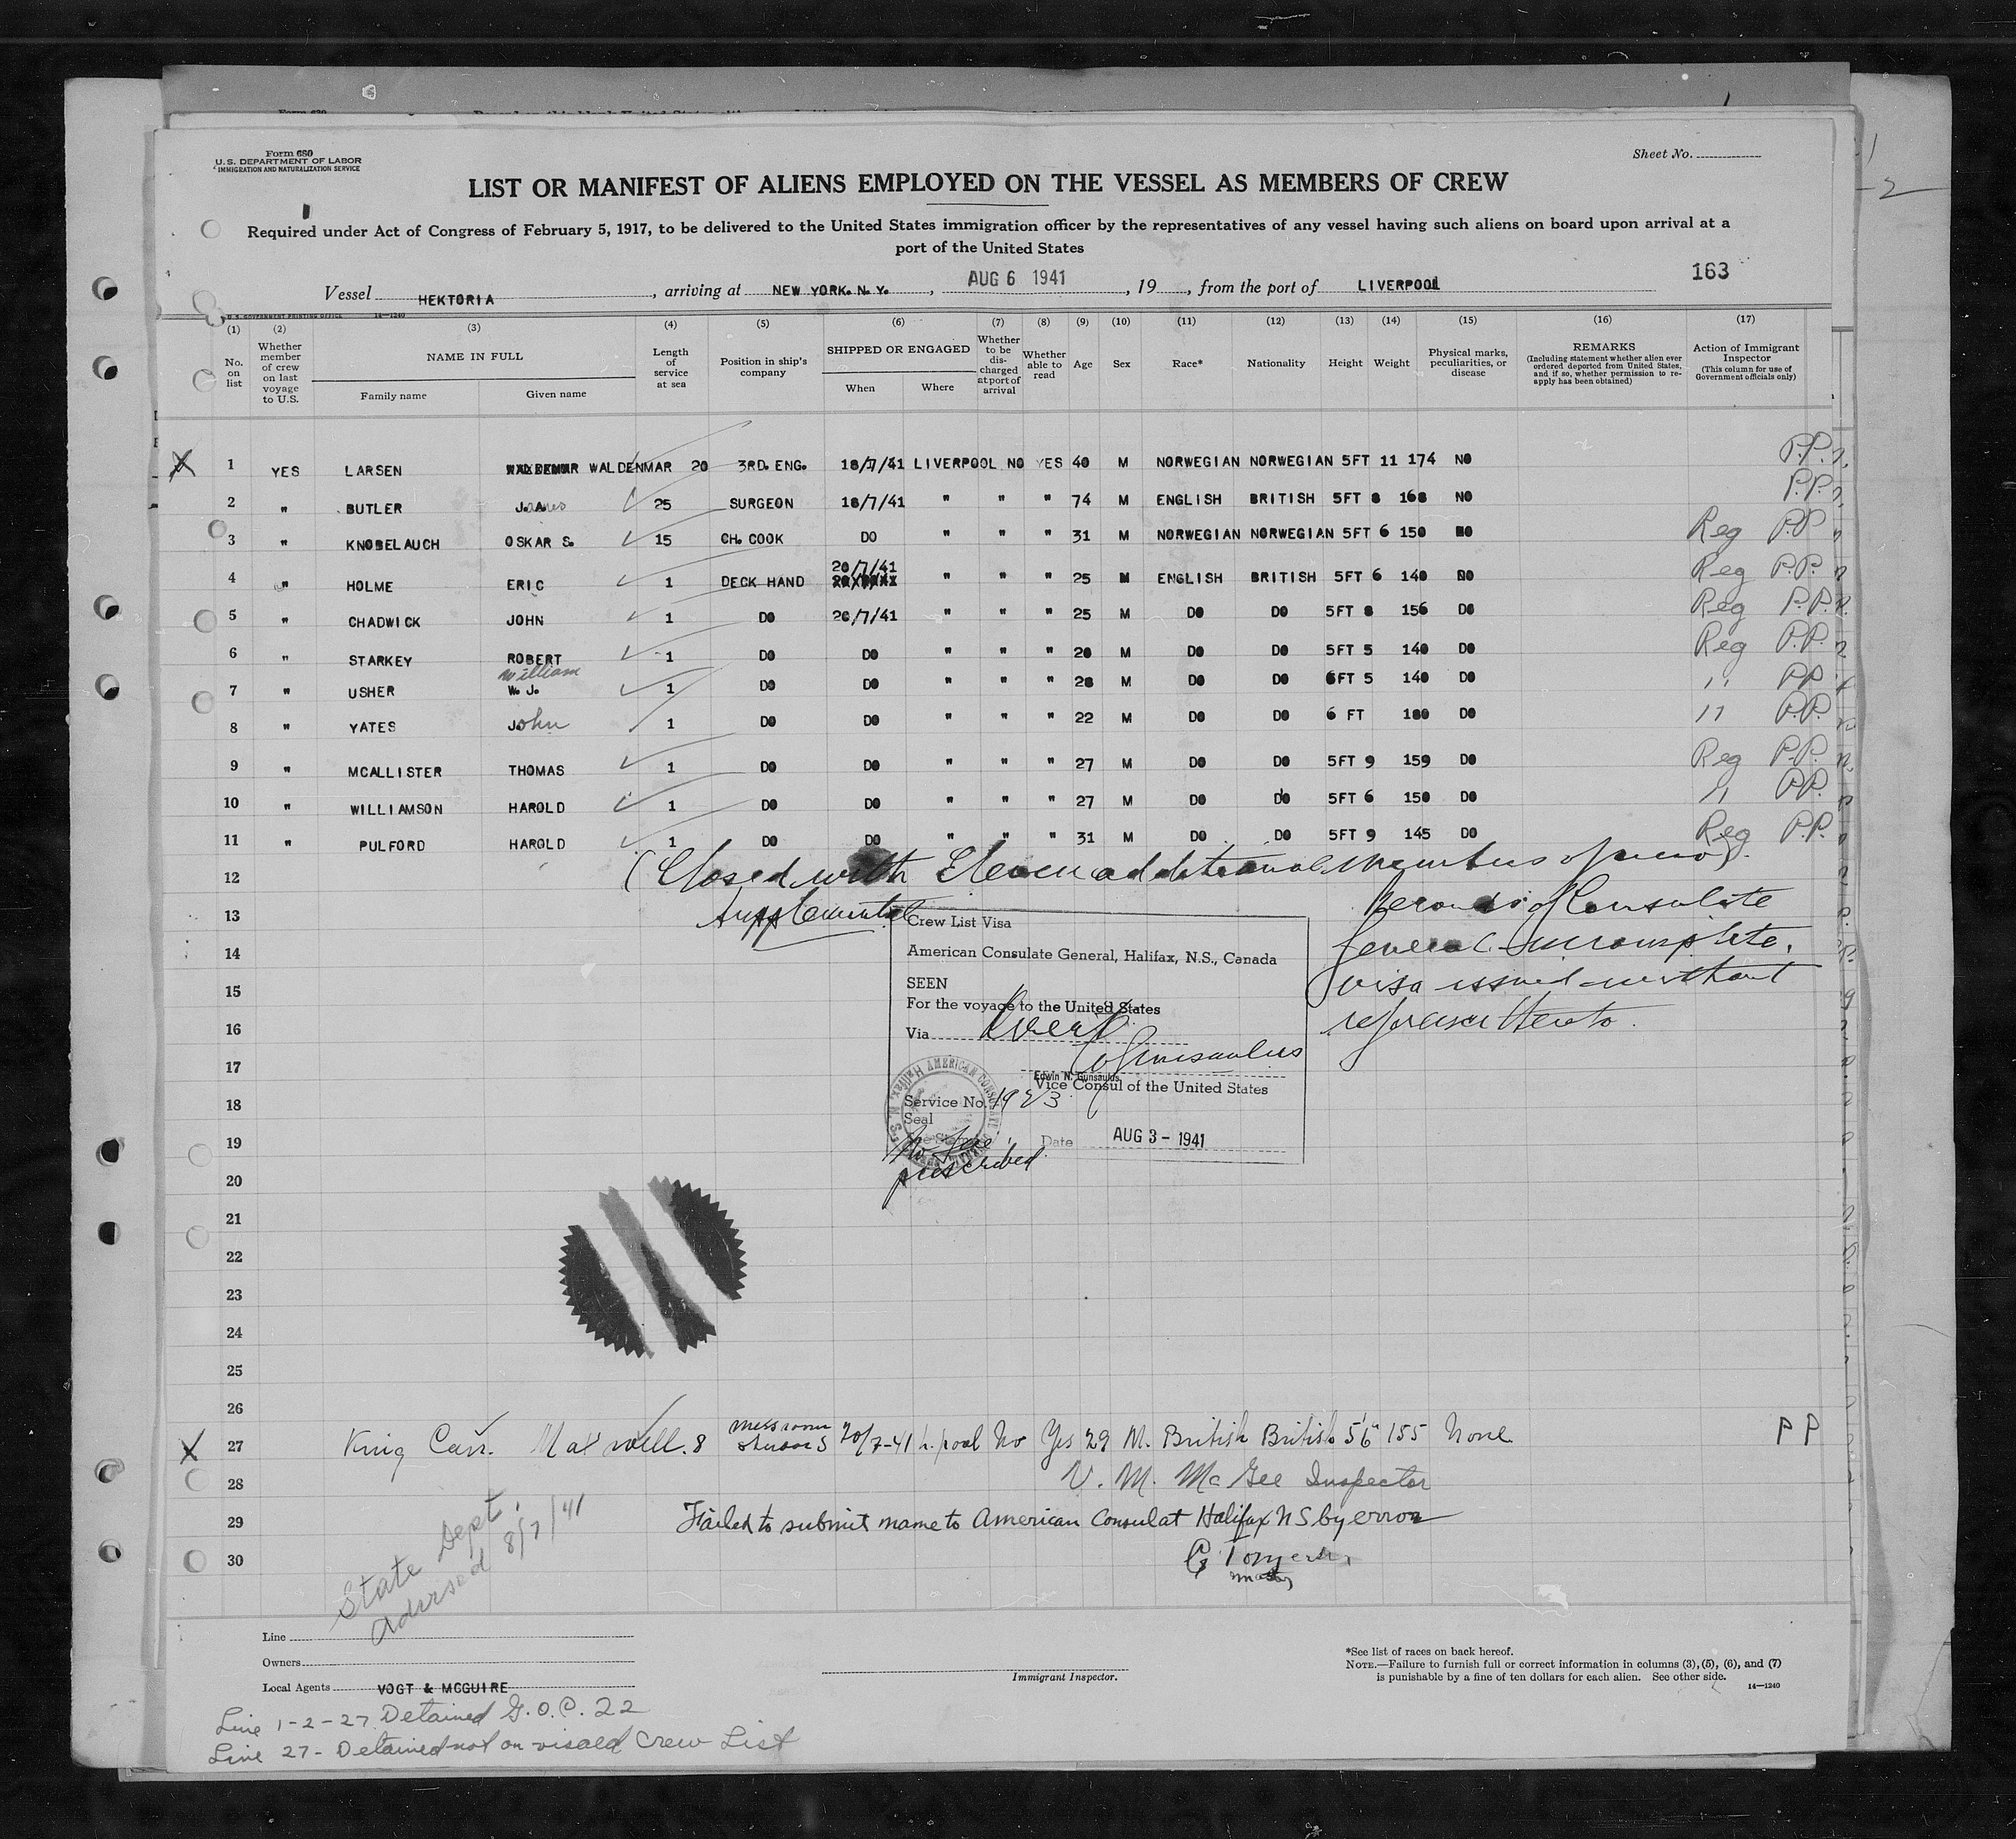 Form 680
U.S. DEPARTMENT OF LABOR
IMMIGRATION AND NATURALIZATION SERVICE
Sheet No.
LIST OR MANIFEST OF ALIENS EMPLOYED ON THE VESSEL AS MEMBERS OF CREW
Required under Act of Congress of February 5, 1917, to be delivered to the United States immigration officer by the representatives of any vessel having such aliens on board upon arrival at a
port of the United States
163
Vessel HEKTORIA, arriving at NEW YORK. N.Y., AUG 6 1941, 19, from the port of LIVERPOOL
U.S. GOVERNMENT PRINTING OFFICE 14—1240
(1) (2) (3) (4) (5) (6) (7) (8) (9) (10) (11) (12) (13) (14) (15) (16) (17)
No. on list
Whether member of crew on last voyage to U.S.
NAME IN FULL
Family name
Given name
Length of service at sea
Position in ship's company
SHIPPED OR ENGAGED
When
Where
Whether to be discharged at port of arrival
Whether able to read
Age
Sex
Race*
Nationality
Height
Weight
Physical marks, peculiarities, or disease
REMARKS
(Including statement whether alien ever ordered deported from United States, and if so, whether permission to reapply has been obtained)
Action of Immigrant Inspector
(This column for use of Government officials only)
X 1 YES LARSEN WALDENMAR 20 3RD. ENG. 18/7/41 LIVERPOOL NO YES 40 M NORWEGIAN NORWEGIAN 5FT 11 174 NO P.P.
2 " BUTLER J.A. James 25 SURGEON 18/7/41 " " " 74 M ENGLISH BRITISH 5FT 8 168 NO P.P.
3 " KNOBELAUCH OSKAR S. 15 CH. COOK DO " " " 31 M NORWEGIAN NORWEGIAN 5FT 6 150 NO Reg P.P
4 " HOLME ERIC 1 DECK HAND 20/7/41 " " " 25 M ENGLISH BRITISH 5FT 6 140 NO Reg P.P.
5 " CHADWICK JOHN 1 DO 20/7/41 " " " 25 M DO DO 5FT 8 156 DO Reg P.P.
6 " STARKEY ROBERT 1 DO DO " " " 20 M DO DO 5FT 5 140 DO Reg P.P.
William
7 " USHER W. J. 1 DO DO " " " 28 M DO DO 6FT 5 140 DO " P.P.
8 " YATES John 1 DO DO " " " 22 M DO DO 6 FT 180 DO " P.P.
9 " MCALLISTER THOMAS 1 DO DO " " " 27 M DO DO 5FT 9 159 DO Reg P.P.
10 " WILLIAMSON HAROLD 1 DO DO " " " 27 M DO DO 5FT 6 150 DO " P.P.
11 " PULFORD HAROLD 1 DO DO " " " 31 M DO DO 5FT 9 145 DO Reg P.P.
12 (Closed with Eleven additional members of crew).
13 Supplemental
14
15
16
17
18
19
20
21
22
23
24
25
26
Records of Consulate
General incomplete.
Visa issued without
reference thereto.
Crew List Visa
American Consulate General, Halifax, N.S., Canada
SEEN
For the voyage to the United States
Via Direct
Edwin N. Gunsaulus
Vice Consul of the United States
Service No. 1923
Seal
Date AUG 3 - 1941
No fee
prescribed.
X 27 King Carr. Maxwell. 8 messroom 20/7-41 L.pool No Yes 29 M. British British 5'6" 155 None P P
28 V. M. McGee Inspector
29 Failed to submit name to American Consul at Halifax N S by error
30
master
State Dept.
Advised 8/7/41
Line
Owners
Local Agents VOGT & MCGUIRE
Immigrant Inspector.
*See list of races on back hereof.
NOTE.—Failure to furnish full or correct information in columns (3), (5), (6), and (7)
is punishable by a fine of ten dollars for each alien. See other side.
14—1240
Line 1-2-27 Detained G.O.C. 22
Line 27 - Detained not on visaed Crew List